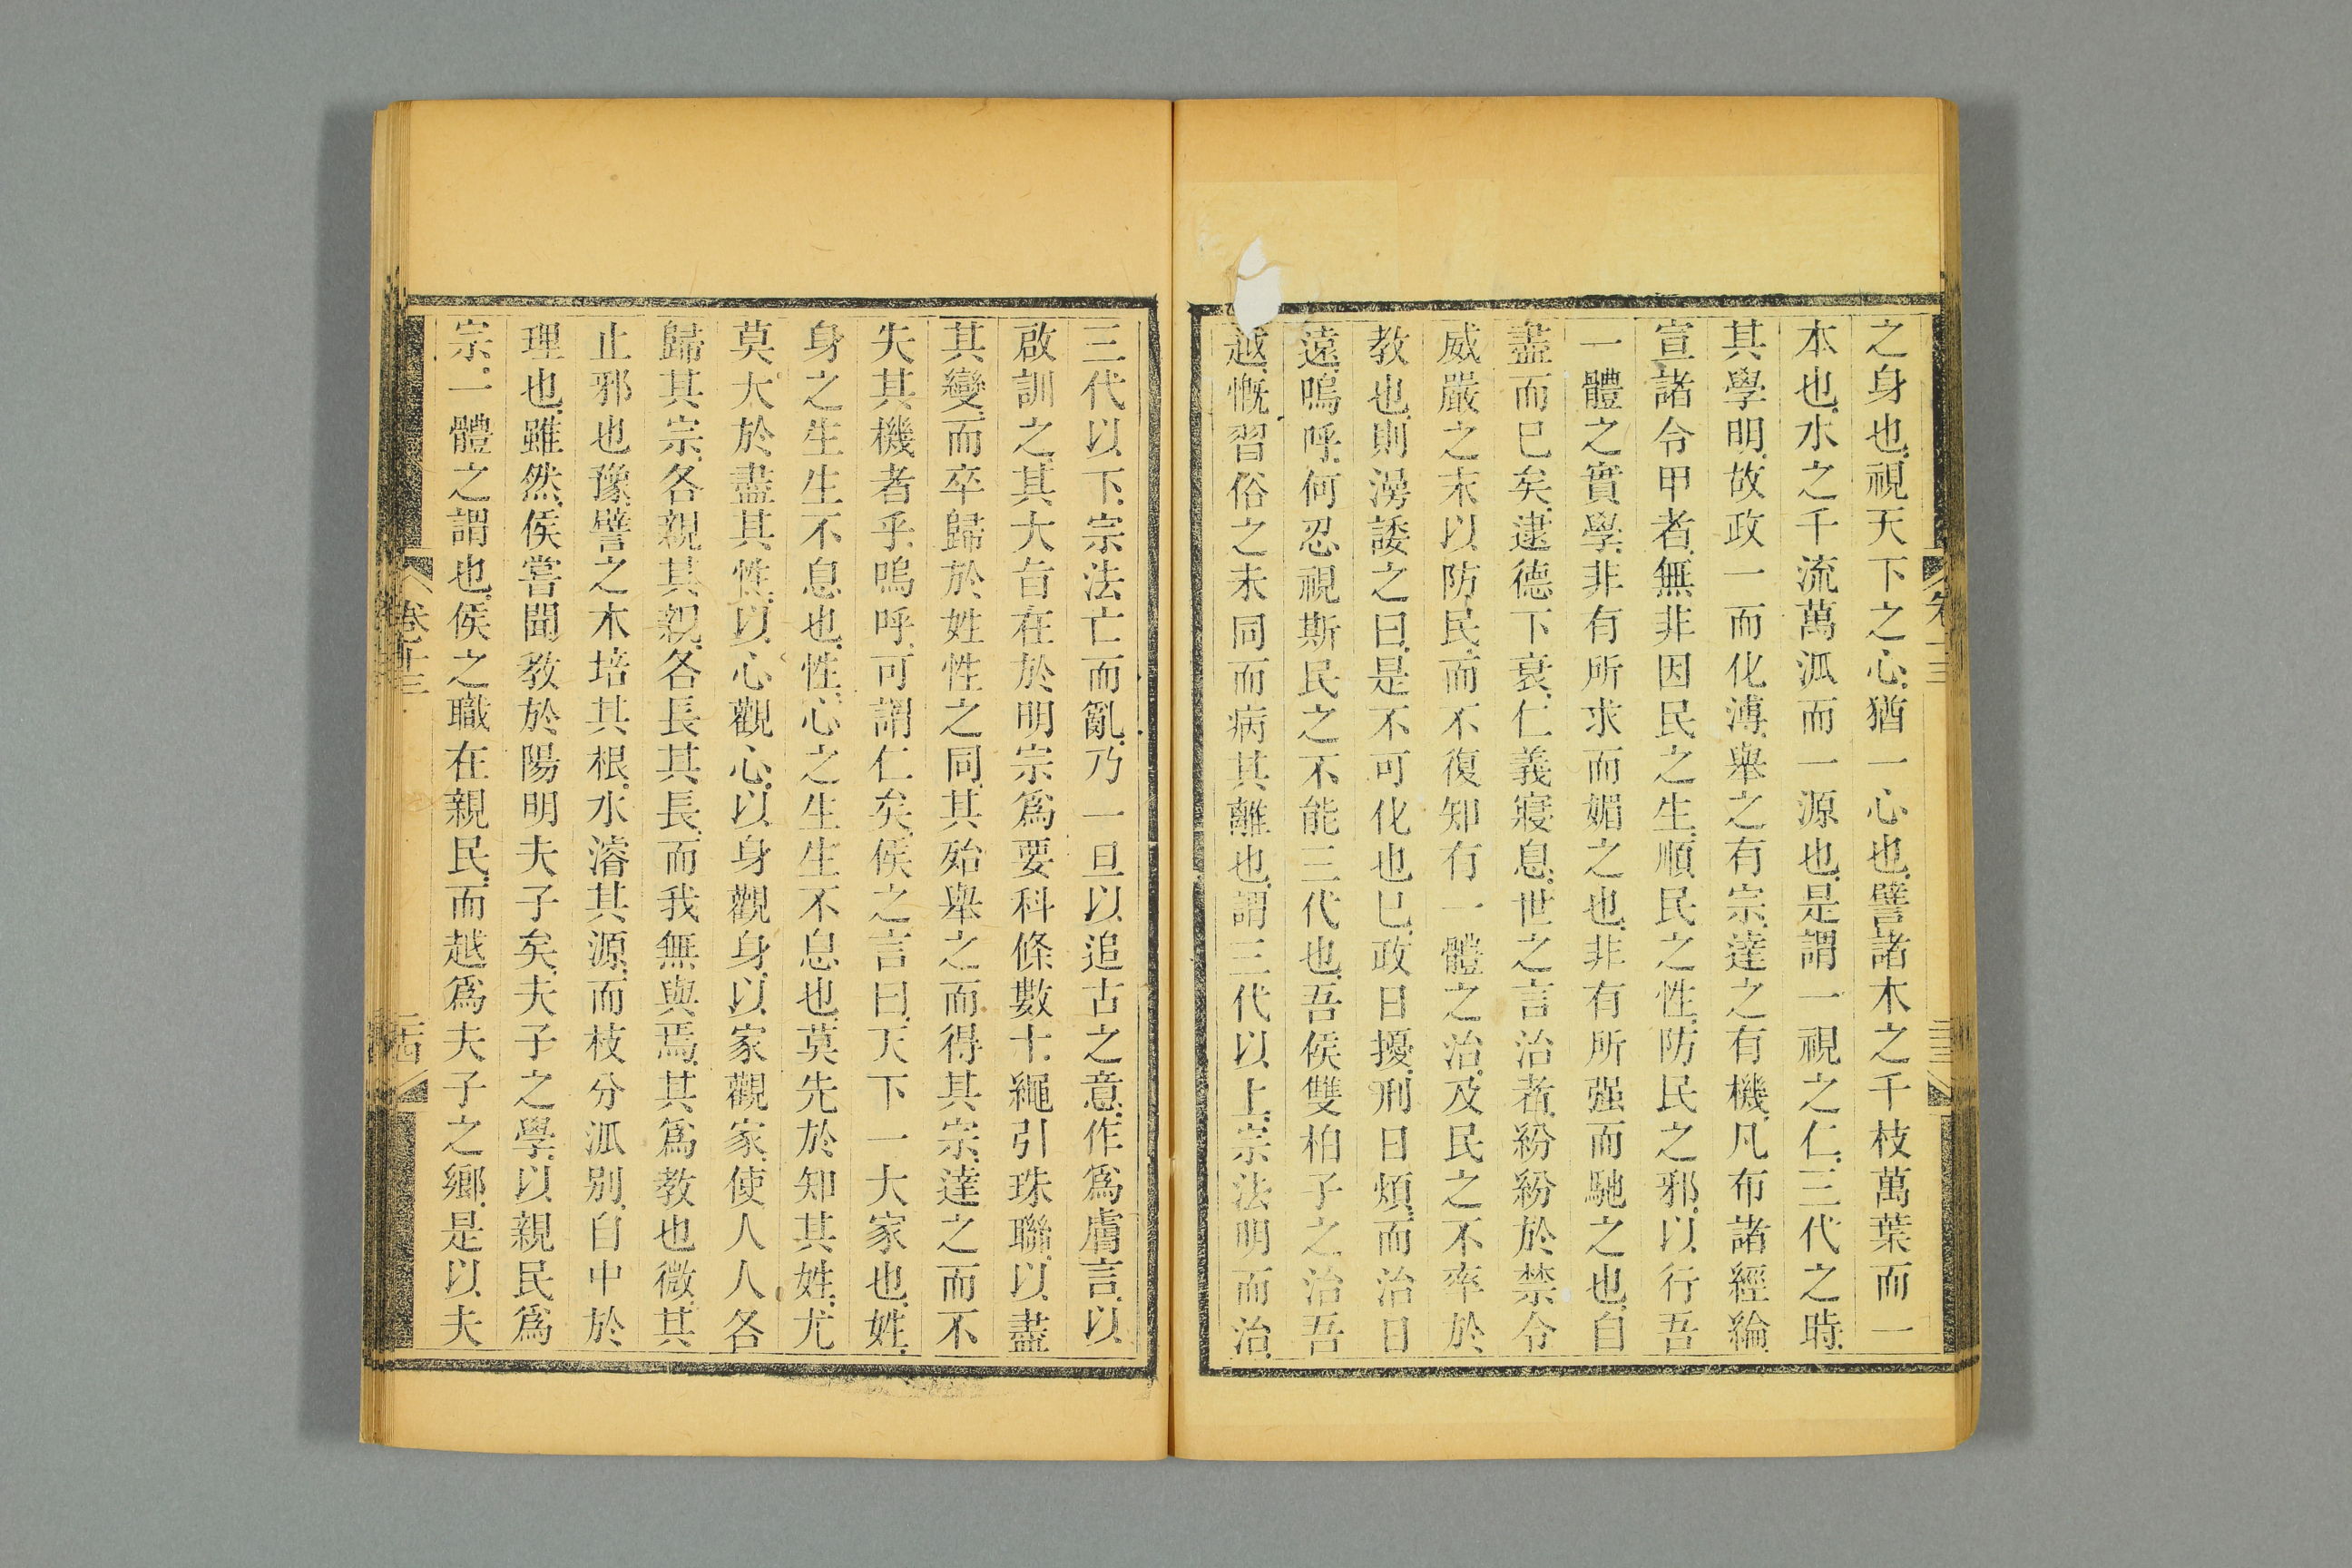 之身也視天下之心猶一心也譬諸木之千枝萬葉而一
本也水之千流萬派而一源也是謂一視之仁三代之時
其學明故政一而化溥舉之有宗達之有機凡布諸經綸
宣諸令甲者無非因民之生順民之性防民之邪以行吾
一體之實學非有所求而媚之也非有所强而馳之也自
盡而已矣逮德下衰仁義寢息世之言治者紛紛於禁令
威嚴之末以防民而不復知有一體之治及民之不率於
教也則謗諉之曰是不可化也已政日擾刑日煩而治日
遠嗚呼何忍視斯民之不能三代也吾侯雙柏子之治吾
越慨習俗之未同而病其離也謂三代以上宗法明而治
三代以下宗法亡而亂乃一旦以追古之意作為膚言以
啟訓之其大旨在於明宗為要科條數十繩引珠聯以盡
其變而卒歸於姓性之同其殆舉之而得其宗達之而不
失其機者乎嗚呼可謂仁矣侯之言曰天下一大家也姓
身之生生不息也性心之生生不息也莫先於知其姓尤
莫大於盡其性以心觀心以身觀身以家觀家使人人各
歸其宗各親其親各長其長而我無與焉其為教也微其
止邪也豫譬之木培其根水濬其源而枝分派別自中於
理也雖然侯嘗聞教於陽明夫子矣夫子之學以親民為
宗一體之謂也侯之職在親民而越為夫子之鄉是以夫
卷十三
二十四